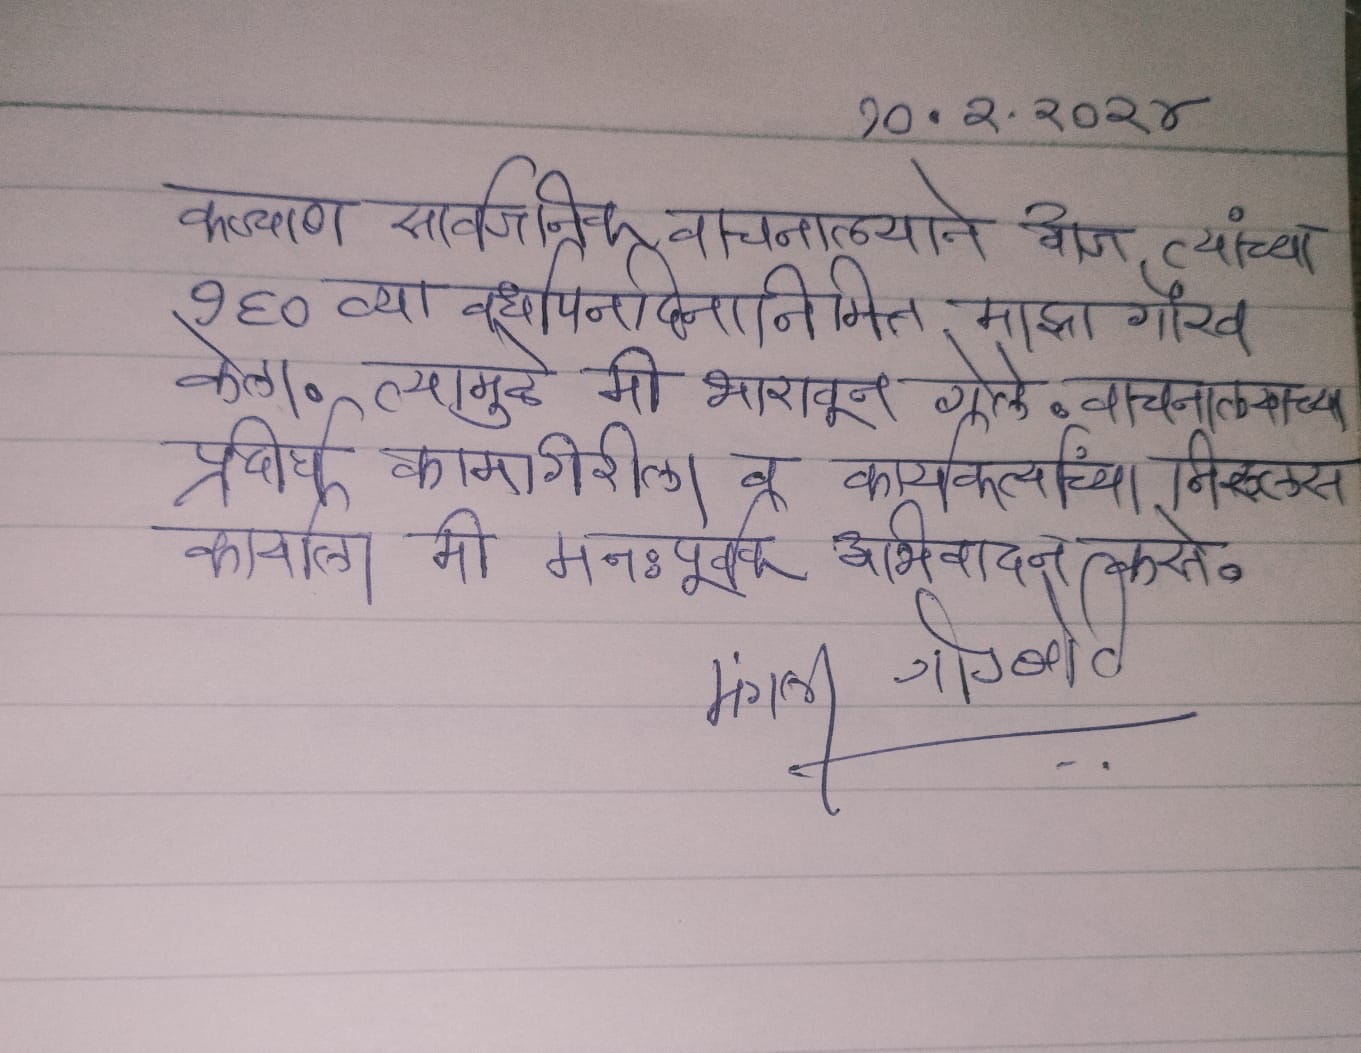 १०.२.२०२४
कल्याण सार्वजनिक वाचनालयाने आज त्यांच्या
१६० व्या वर्धापनदिनानिमित्त माझा गौरव
केला. त्यामुळे मी भारावून गेले. वाचनालयाच्या
प्रदीर्घ कामगिरीला व कार्यकर्त्यांच्या निरलस
कार्याला मी मनःपूर्वक अभिवादन करते.
मंगला